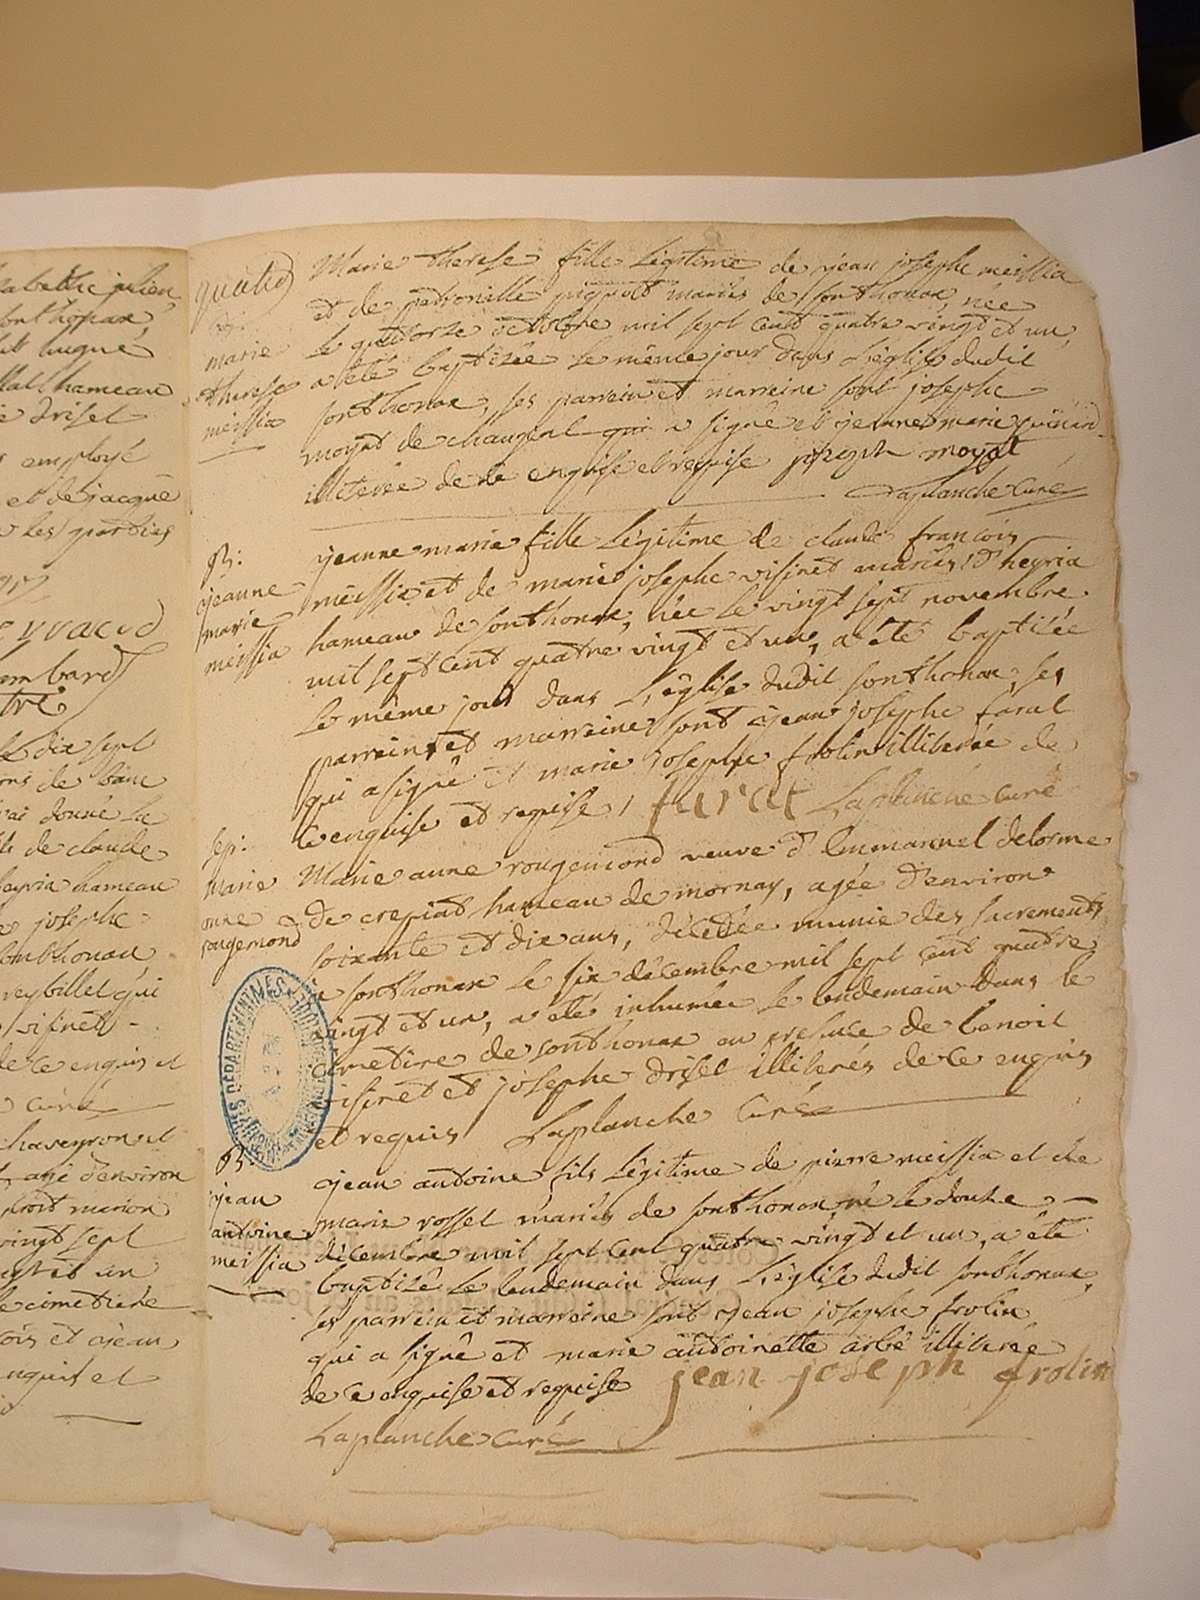 abethe julien
sonthonax,
dit hugue
hameau
e drisel
employé
et de jacque
les parties
yvacid
lombard
le dix sept
ons de banc
ai donné la
de claude
heyria hameau
joseph
sonthonax
reybillet qui
visinet
de ce enquis et
curé
chaveyron et
agé d'environ
marion
vingt sept
et un
le cimetiere
ois et jean
enquis et
quatre
marie
therese
meissia
Marie therese fille légitime de jean josephe meissia
et de petronille piquet mariés de sonthonax, née
le quatorze octobre mil sept cent quatre vingt et un,
a été baptizée le même jour dans l'église dudit
sonthonax, ses parrein et marreine sont josephe
moyat de changeal qui a signé et jeanne marie guinard
illiterée de ce enquise et requise joseph moyat
Laplanche Curé
B:
jeanne
marie
meissia
jeanne marie fille légitime de claude françois
meissia et de marie josephe visinet mariés d'heyria
hameau de sonthonax, née le vingt sept novembre
mil sept cent quatre vingt et un, a été baptizée
le même jour dans l'église dudit sonthonax, ses
parrein et marreine sont jean josephe farat
qui a signé et marie josephe frolin illiterée de
ce enquise et requise, farat Laplanche curé
sep:
Marie
anne
rougemond
Marie anne rougemond veuve d'Emmanuel delorme
de crepiat hameau de mornay, agée d'environ
soixante et dix ans, décédée munie des sacrements
a sonthonax le six décembre mil sept cent quatre
vingt et un, a été inhumée le lendemain dans le
cimetiere de sonthonax en presence de benoit
visinet et josephe drisel illiterés de ce enquis
et requis Laplanche Curé
B:
jean
antoine
meissia
jean antoine fils légitime de pierre meissia et de
marie rosset mariés de sonthonax né le douze
décembre mil sept cent quatre vingt et un, a été
baptizé le lendemain dans l'église dudit sonthonax,
ses parrein et marreine sont jean josephe frolin
qui a signé et marie antoinette arbé illiterée
de ce enquise et requise jean joseph frolin
Laplanche curé